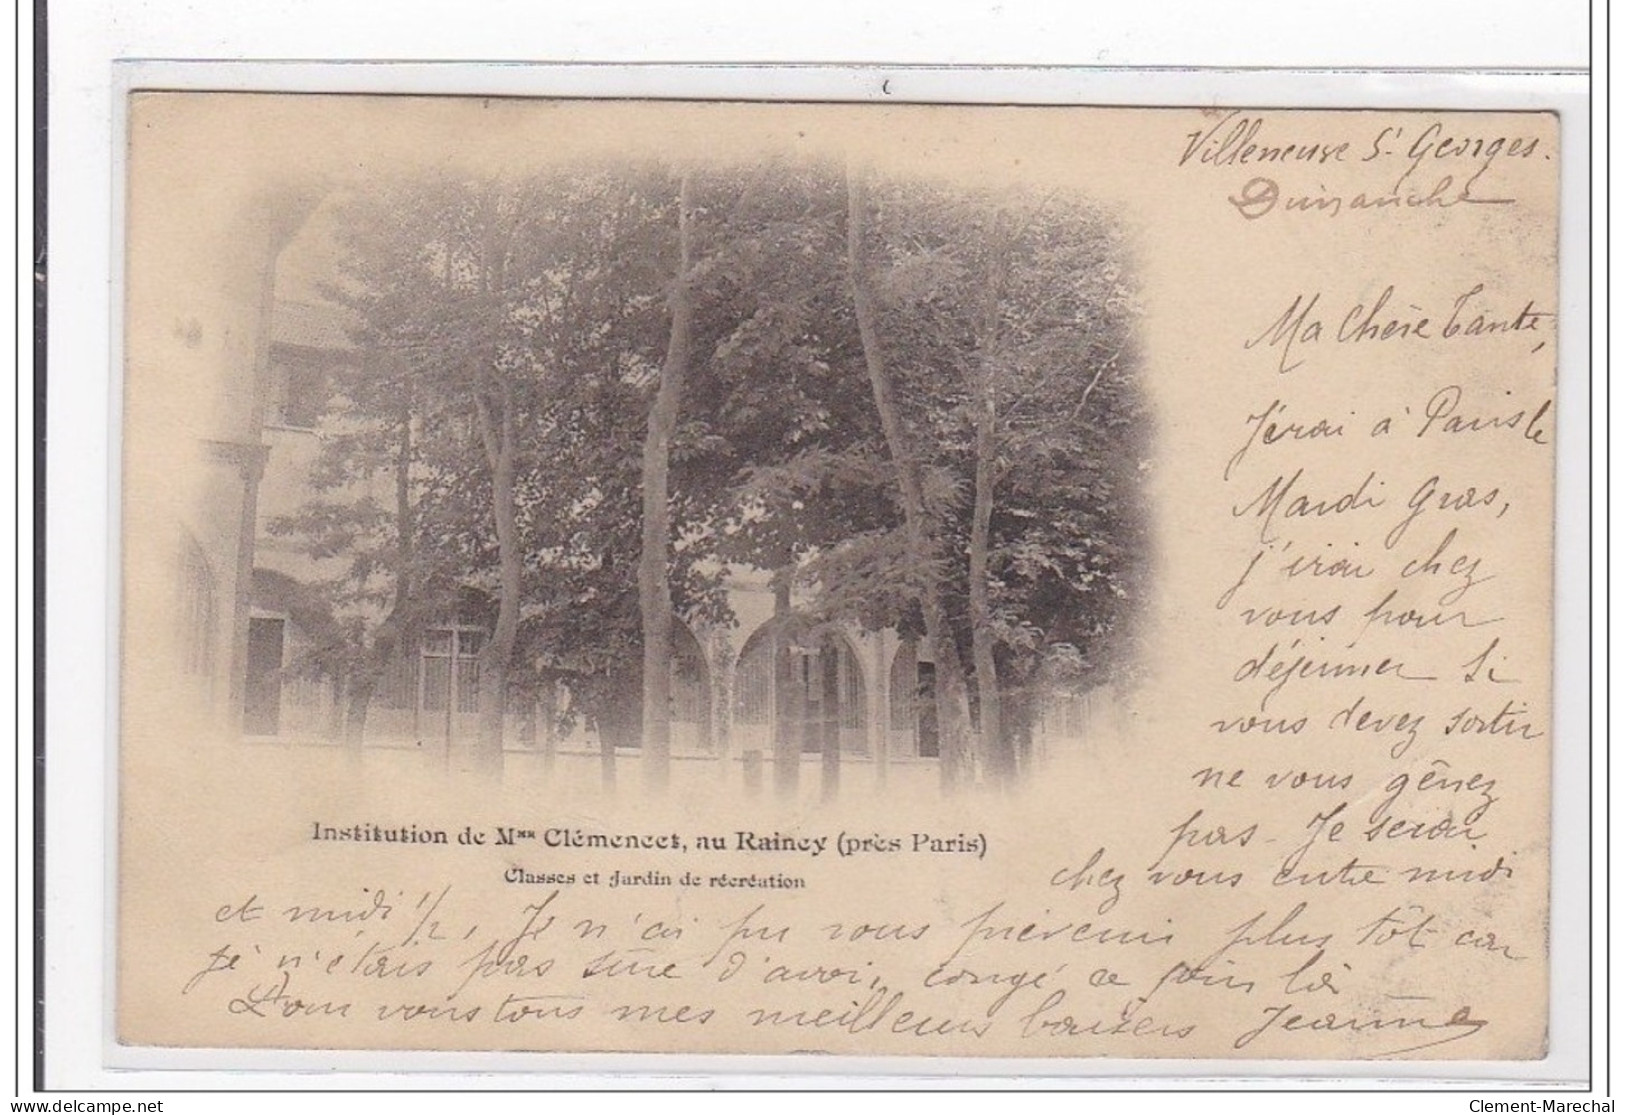 Villeneuve St Georges.
Dimanche
Ma Chère Tante,
J'érai à Paris le
Mardi Gras,
j'irai chez
vous pour
déjeuner Si
vous devez sortir
ne vous gênez
pas - Je serai
chez vous entre midi
et midi 1/2, Je n'ai pu vous prévenir plus tôt car
je n'étais pas sûre d'avoir congé ce jour là
Pour vous tous mes meilleurs baisers Jeanne
Institution de Mme Clémencet, au Raincy (près Paris)
Classes et Jardin de récréation
Clement-Marechal
delcampe.net